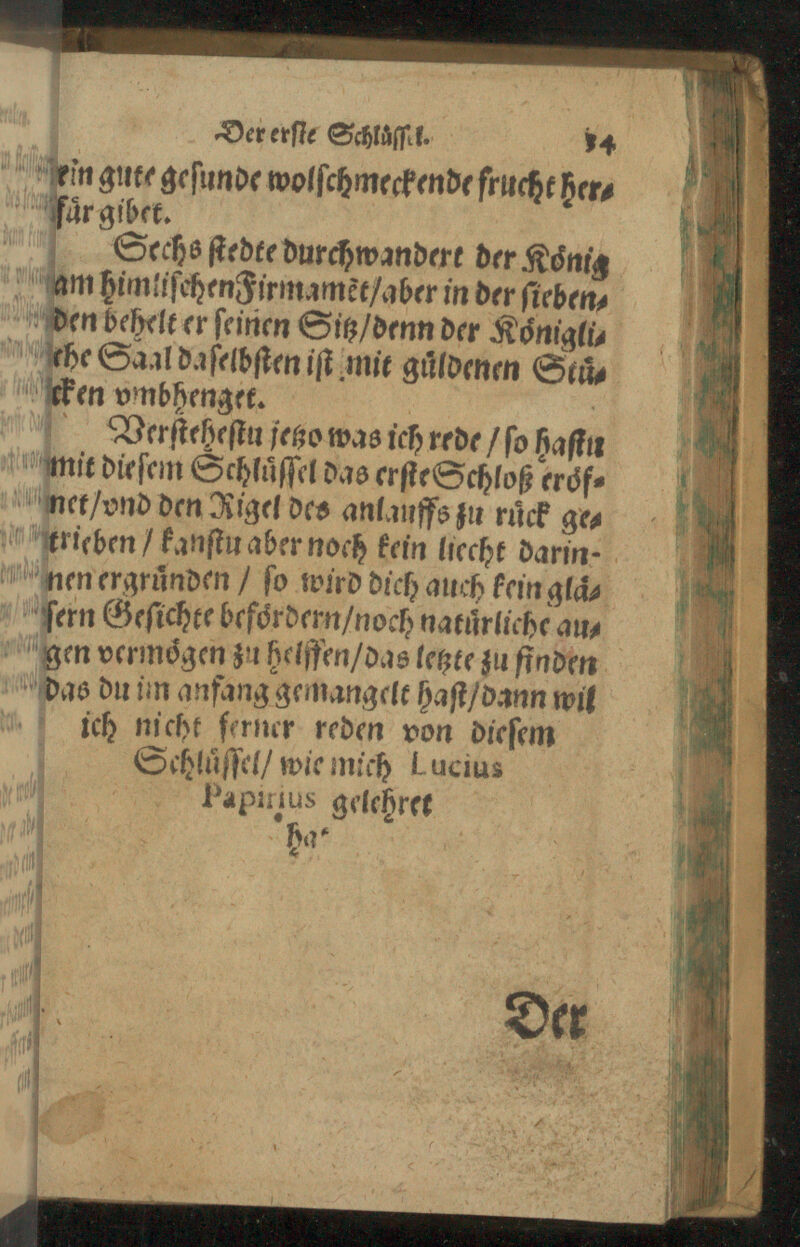 Der erſte Schluͤſſel. 54
ein gute geſunde wolſchmeckende frucht her⸗
fuͤr gibet.
Sechs ſtedte durchwandert der Koͤnig
am himliſchen Firmamẽt/aber in der ſieben⸗
den behelt er ſeinen Sitz/denn der Koͤnigli⸗
che Saal daſelbſten iſt mit guͤldenen Stuͤ⸗
cken vmbhenget.
Verſteheſtu jetzo was ich rede / ſo haſtu
mit dieſem Schluͤſſel das erſte Schloß eroͤf⸗
net/vnd den Rigel des anlauffs zu ruͤck ge⸗
trieben / kanſtu aber noch kein liecht darin-
nen ergruͤnden / ſo wird dich auch kein glaͤ⸗
ſern Geſichte befoͤrdern/noch natuͤrliche au⸗
gen vermoͤgen zu helffen/das letzte zu finden
das du im anfang gemangelt haſt/dann wil
ich nicht ferner reden von dieſem
Schluͤſſel/ wie mich Lucius
Papirius gelehret
hat
Der